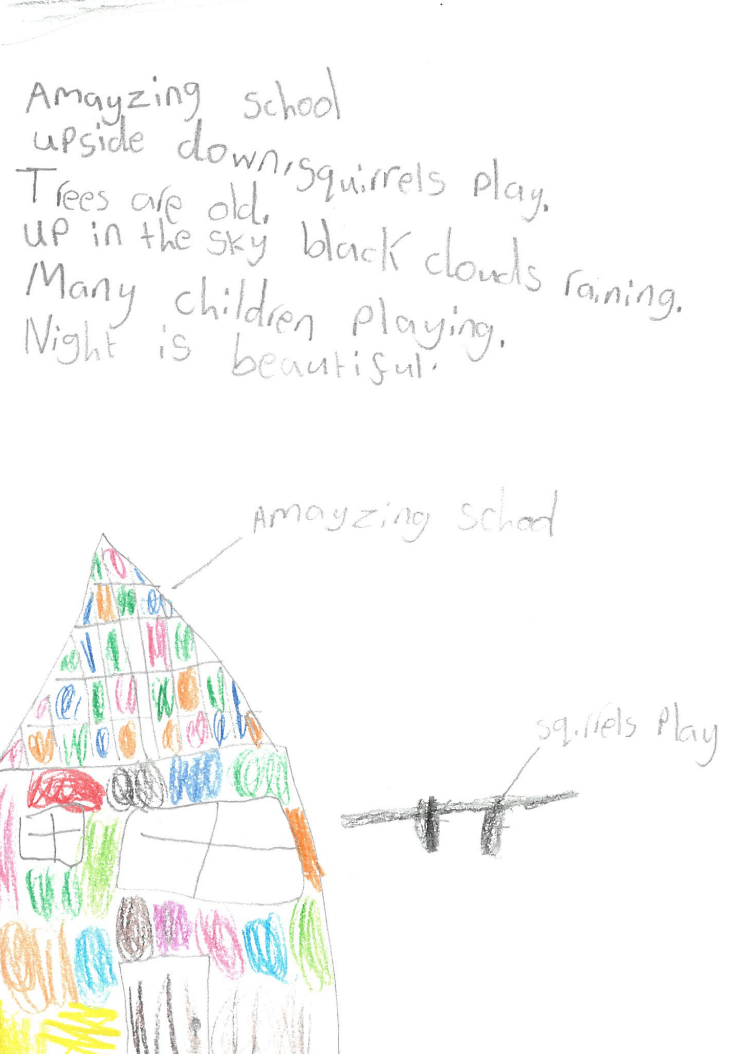 Amayzing school
upside down, squirrels play.
Trees are old.
up in the sky black clouds raining.
Many children playing.
Night is beautiful.
Amayzing school
squirrels play